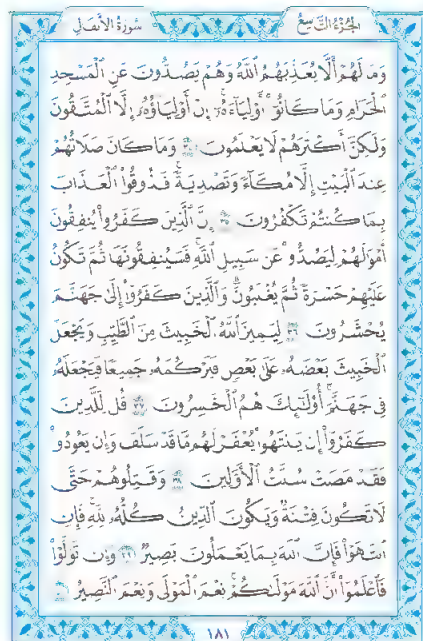 الجزء التاسع
سورة الأنفال
وَمَا لَهُمْ أَلَّا يُعَذِّبَهُمُ ٱللَّهُ وَهُمْ يَصُدُّونَ عَنِ ٱلْمَسْجِدِ
ٱلْحَرَامِ وَمَا كَانُوٓا۟ أَوْلِيَآءَهُۥٓ إِنْ أَوْلِيَآؤُهُۥٓ إِلَّا ٱلْمُتَّقُونَ
وَلَٰكِنَّ أَكْثَرَهُمْ لَا يَعْلَمُونَ ٣٤ وَمَا كَانَ صَلَاتُهُمْ
عِندَ ٱلْبَيْتِ إِلَّا مُكَآءً وَتَصْدِيَةً فَذُوقُوا۟ ٱلْعَذَابَ
بِمَا كُنتُمْ تَكْفُرُونَ ٣٥ إِنَّ ٱلَّذِينَ كَفَرُوا۟ يُنفِقُونَ
أَمْوَٰلَهُمْ لِيَصُدُّوا۟ عَن سَبِيلِ ٱللَّهِ فَسَيُنفِقُونَهَا ثُمَّ تَكُونُ
عَلَيْهِمْ حَسْرَةً ثُمَّ يُغْلَبُونَ وَٱلَّذِينَ كَفَرُوٓا۟ إِلَىٰ جَهَنَّمَ
يُحْشَرُونَ ٣٦ لِيَمِيزَ ٱللَّهُ ٱلْخَبِيثَ مِنَ ٱلطَّيِّبِ وَيَجْعَلَ
ٱلْخَبِيثَ بَعْضَهُۥ عَلَىٰ بَعْضٍ فَيَرْكُمَهُۥ جَمِيعًا فَيَجْعَلَهُۥ
فِى جَهَنَّمَ أُو۟لَٰٓئِكَ هُمُ ٱلْخَٰسِرُونَ ٣٧ قُل لِّلَّذِينَ
كَفَرُوٓا۟ إِن يَنتَهُوا۟ يُغْفَرْ لَهُم مَّا قَدْ سَلَفَ وَإِن يَعُودُوا۟
فَقَدْ مَضَتْ سُنَّتُ ٱلْأَوَّلِينَ ٣٨ وَقَٰتِلُوهُمْ حَتَّىٰ
لَا تَكُونَ فِتْنَةٌ وَيَكُونَ ٱلدِّينُ كُلُّهُۥ لِلَّهِ فَإِنِ
ٱنتَهَوْا۟ فَإِنَّ ٱللَّهَ بِمَا يَعْمَلُونَ بَصِيرٌ ٣٩ وَإِن تَوَلَّوْا۟
فَٱعْلَمُوٓا۟ أَنَّ ٱللَّهَ مَوْلَىٰكُمْ نِعْمَ ٱلْمَوْلَىٰ وَنِعْمَ ٱلنَّصِيرُ ٤٠
١٨١